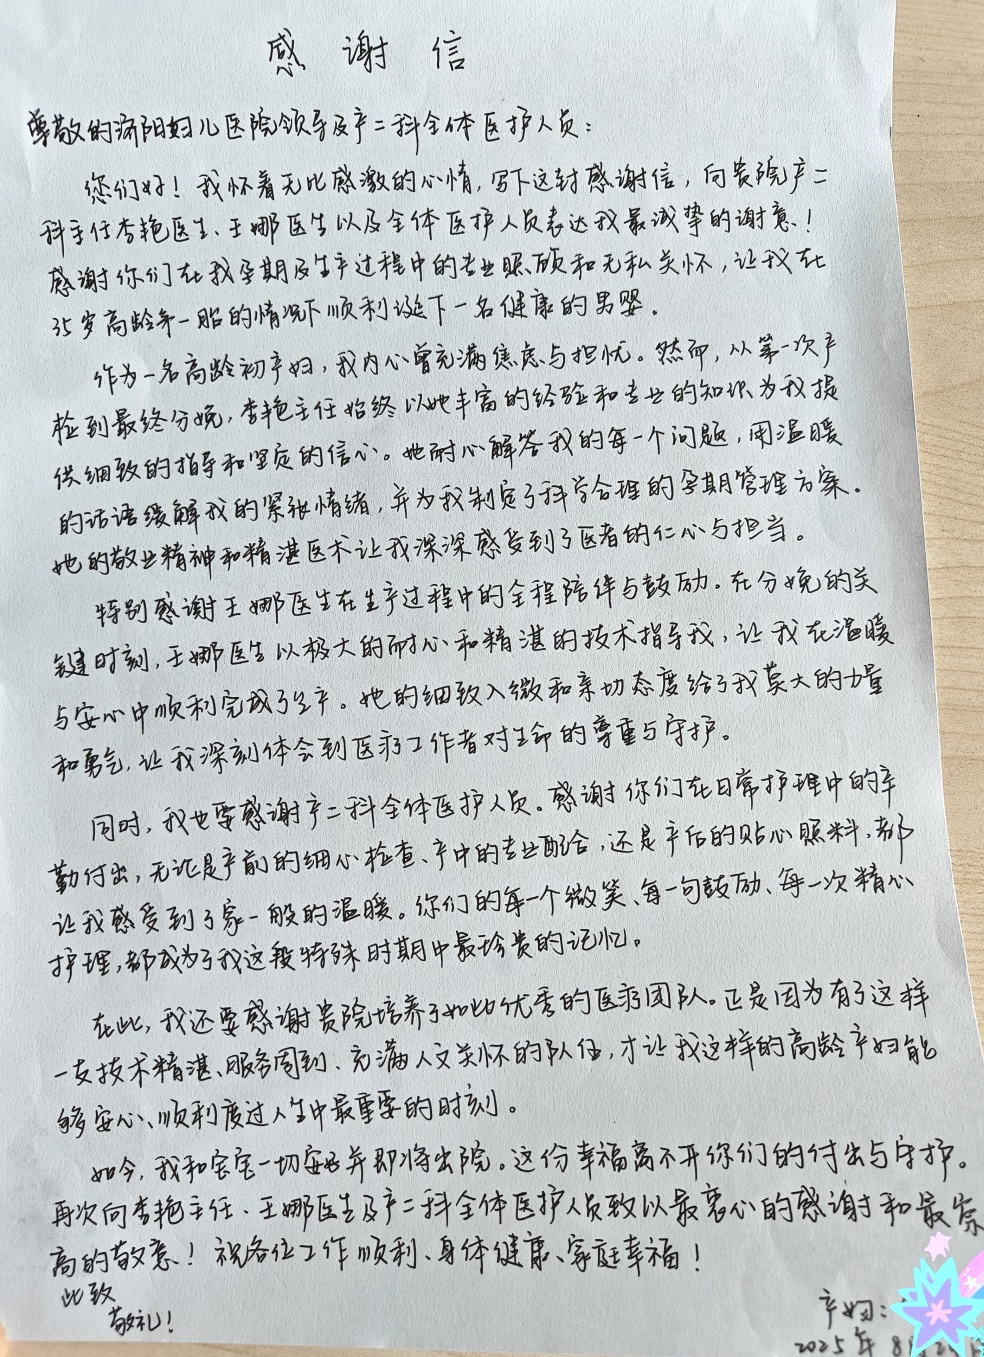 感谢信
尊敬的济阳妇儿医院领导及产二科全体医护人员：
您们好！我怀着无比感激的心情，写下这封感谢信，向贵院产二
科主任李艳医生、王娜医生以及全体医护人员表达我最诚挚的谢意！
感谢你们在我孕期及生产过程中的专业照顾和无私关怀，让我在
35岁高龄第一胎的情况下顺利诞下一名健康的男婴。
作为一名高龄初产妇，我内心曾充满焦虑与担忧。然而，从第一次产
检到最终分娩，李艳主任始终以她丰富的经验和专业的知识为我提
供细致的指导和坚定的信心。她耐心解答我的每一个问题，用温暖
的话语缓解我的紧张情绪，并为我制定了科学合理的孕期管理方案。
她的敬业精神和精湛医术让我深深感受到了医者的仁心与担当。
特别感谢王娜医生在生产过程中的全程陪伴与鼓励。在分娩的关
键时刻，王娜医生以极大的耐心和精湛的技术指导我，让我在温暖
与安心中顺利完成了生产。她的细致入微和亲切态度给了我莫大的力量
和勇气，让我深刻体会到医疗工作者对生命的尊重与守护。
同时，我也要感谢产二科全体医护人员。感谢你们在日常护理中的辛
勤付出，无论是产前的细心检查、产中的专业配合，还是产后的贴心照料，都
让我感受到了家一般的温暖。你们的每一个微笑、每一句鼓励、每一次精心
护理，都成为了我这段特殊时期中最珍贵的记忆。
在此，我还要感谢贵院培养了如此优秀的医疗团队。正是因为有了这样
一支技术精湛、服务周到、充满人文关怀的队伍，才让我这样的高龄产妇能
够安心、顺利度过人生中最重要的时刻。
如今，我和宝宝一切安好并即将出院。这份幸福离不开你们的付出与守护。
再次向李艳主任、王娜医生及产二科全体医护人员致以最衷心的感谢和最崇
高的敬意！祝各位工作顺利、身体健康、家庭幸福！
此致
敬礼！
产妇：
2025年8月